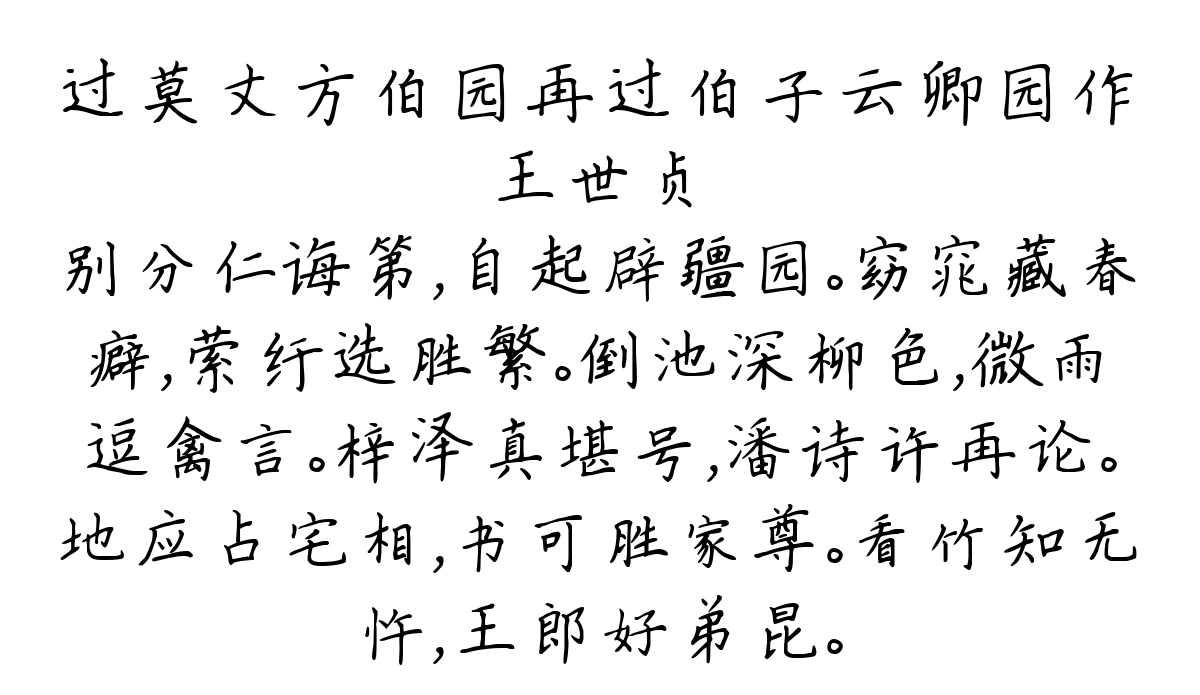 过莫丈方伯园再过伯子云卿园作
王世贞
别分仁诲第,自起辟疆园。窈窕藏春
癖,萦纡选胜繁。倒池深柳色,微雨
逗禽言。梓泽真堪号,潘诗许再论。
地应占宅相,书可胜家尊。看竹知无
忤,王郎好弟昆。